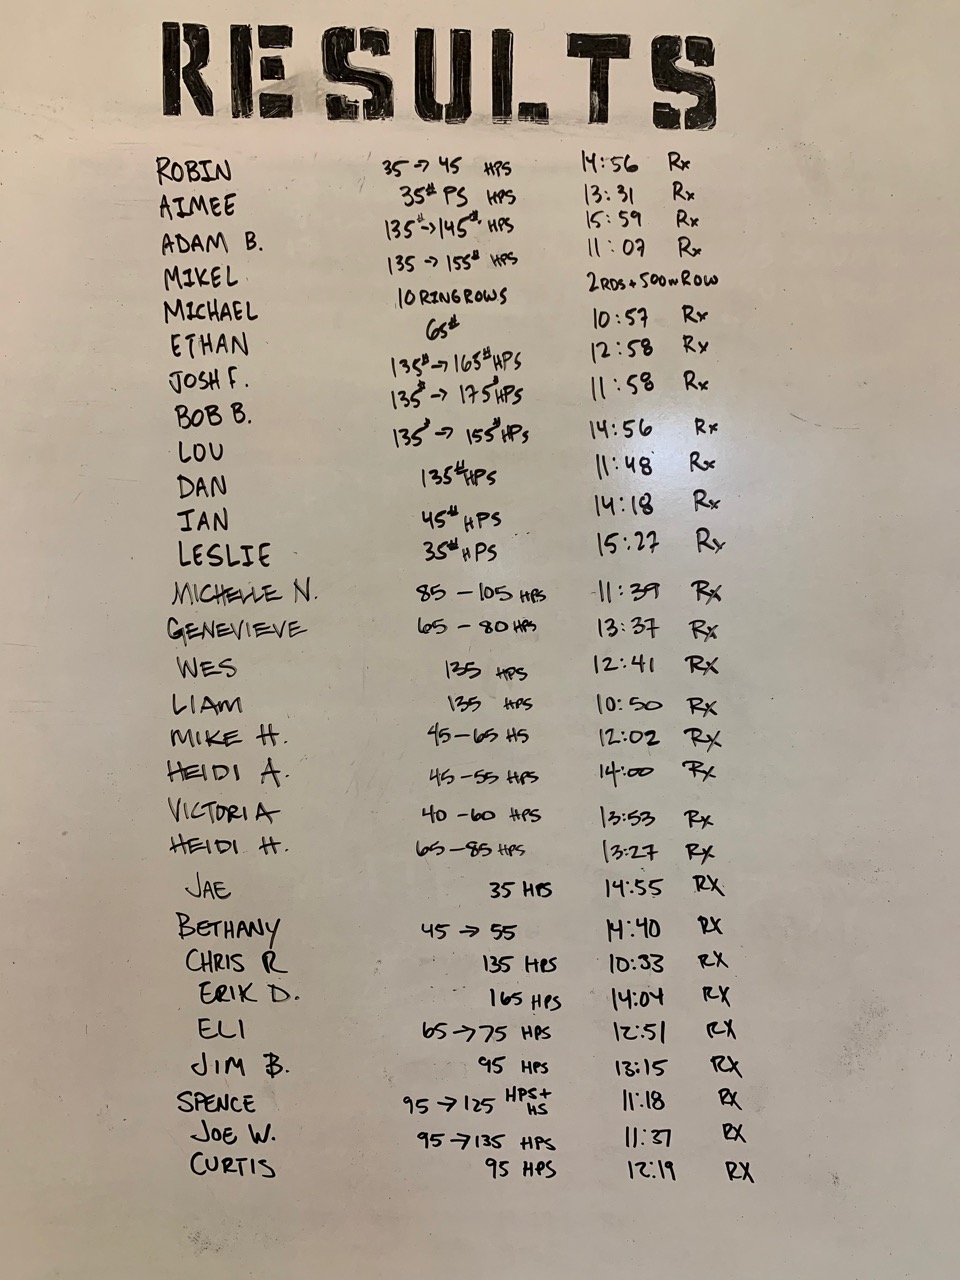 RESULTS
ROBIN 35 → 45 HPS 14:56 Rx
AIMEE 35# PS HPS 13:31 Rx
ADAM B. 135# → 145# HPS 15:59 Rx
MIKEL 135 → 155# HPS 11:07 Rx
MICHAEL 10 RING ROWS 2 RDS + 500m ROW
ETHAN 65# 10:57 Rx
JOSH F. 135# → 165# HPS 12:58 Rx
BOB B. 135# → 175# HPS 11:58 Rx
LOU 135# → 155# HPS 14:56 Rx
DAN 135# HPS 11:48 Rx
IAN 45# HPS 14:18 Rx
LESLIE 35# HPS 15:27 Rx
MICHELLE N. 85 - 105 HPS 11:39 RX
GENEVIEVE 65 - 80 HPS 13:37 RX
WES 135 HPS 12:41 RX
LIAM 135 HPS 10:50 RX
MIKE H. 45-65 HS 12:02 RX
HEIDI A. 45-55 HPS 14:00 RX
VICTORIA 40 -60 HPS 13:53 RX
HEIDI H. 65-85 HPS 13:27 RX
JAE 35 HPS 14:55 RX
BETHANY 45 → 55 14:40 RX
CHRIS R 135 HPS 10:33 RX
ERIK D. 165 HPS 14:04 RX
ELI 65 → 75 HPS 12:51 RX
JIM B. 95 HPS 13:15 RX
SPENCE 95 → 125 HPS + HS 11:18 RX
JOE W. 95 → 135 HPS 11:37 RX
CURTIS 95 HPS 12:19 RX